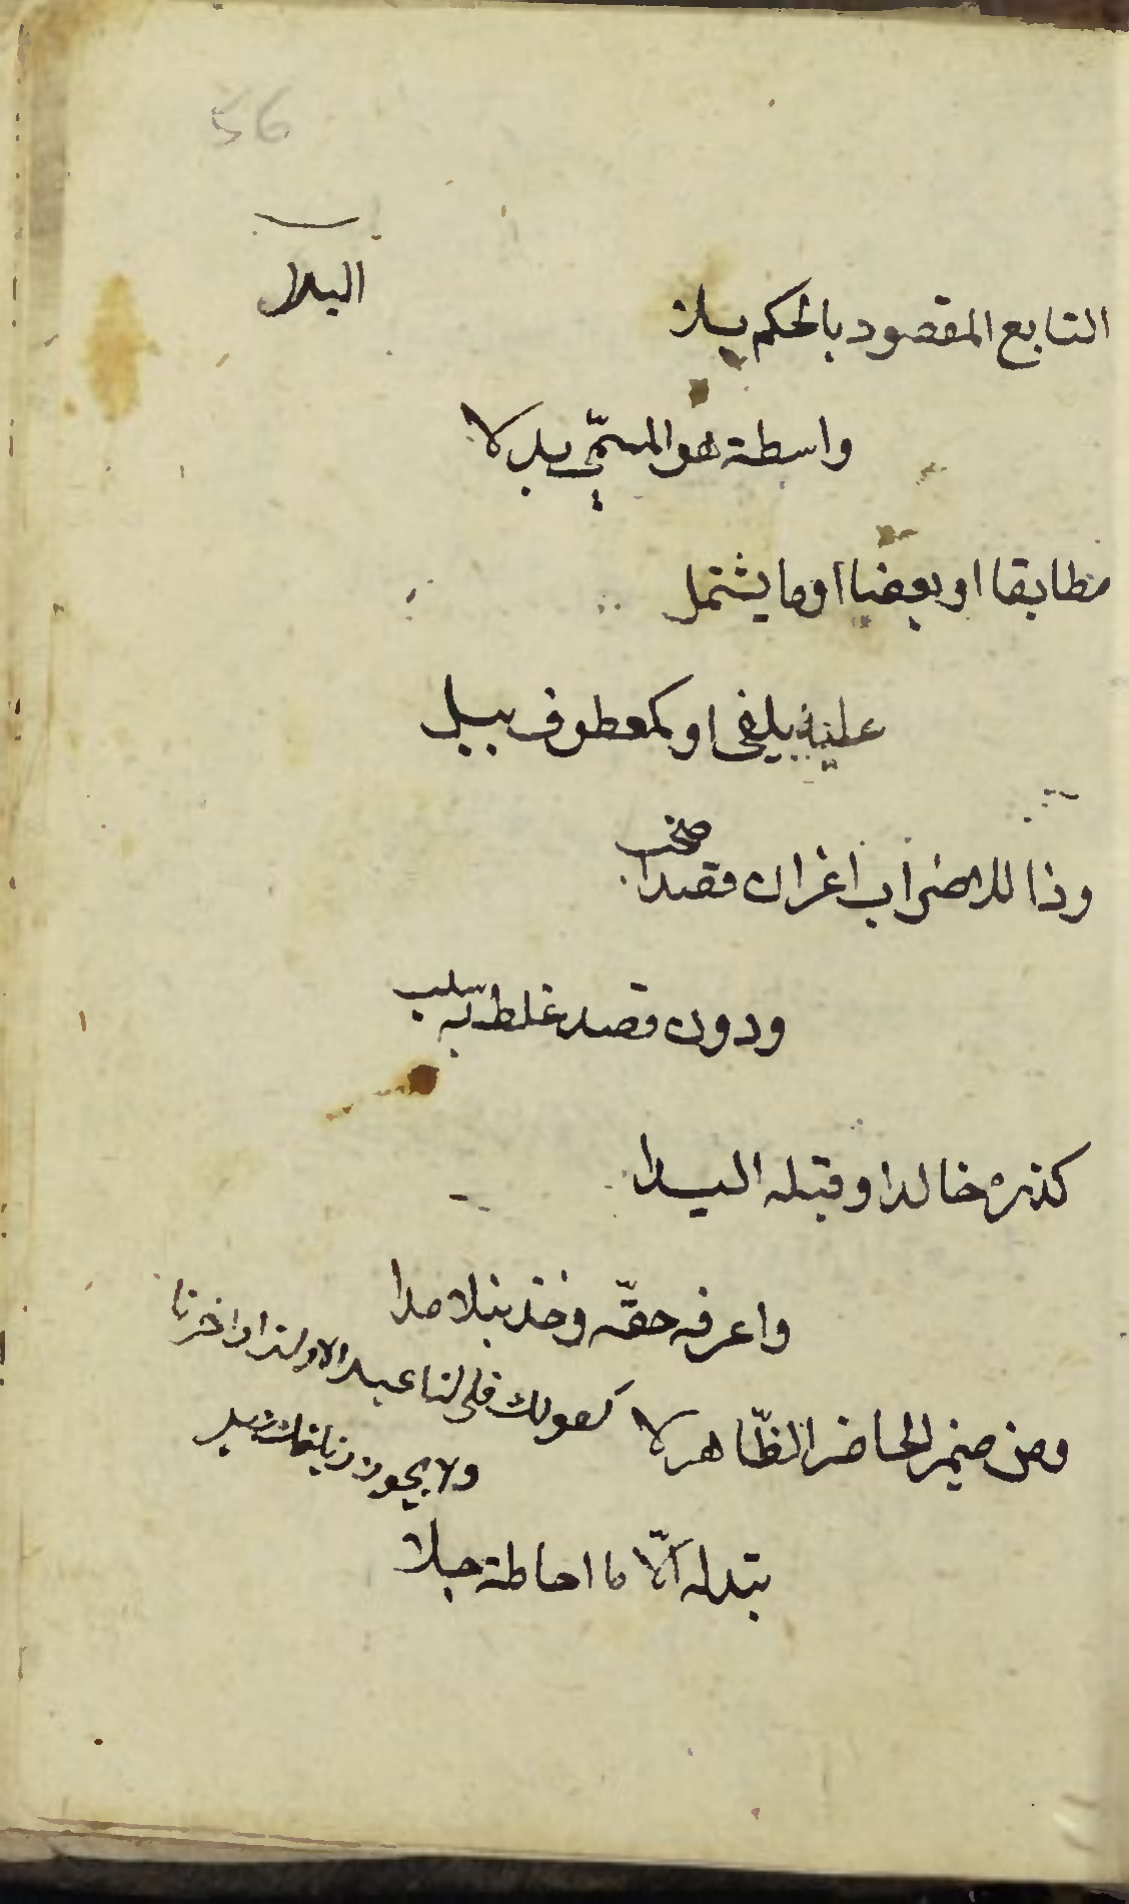 56
البدل
التابع المقصود بالحكم بلا
واسطة هو المسمّى بدلا
مطابقا او بعضا او ما يشتمل
عليه يلفى او كمعطوف ببل
وذا للاضراب اعز ان قصدا صحب
ودون قصد غلط به سلب
كزره خالدا وقبله اليدا
واعرفه حقّه وخذ نبلا مدا
ومن ضمير الحاضر الظّاهر لا
كقولك لنا عيدا لاولنا واخرنا
ولا يجوز رايتك زيد
تبدله الّا ما احاطة جلا